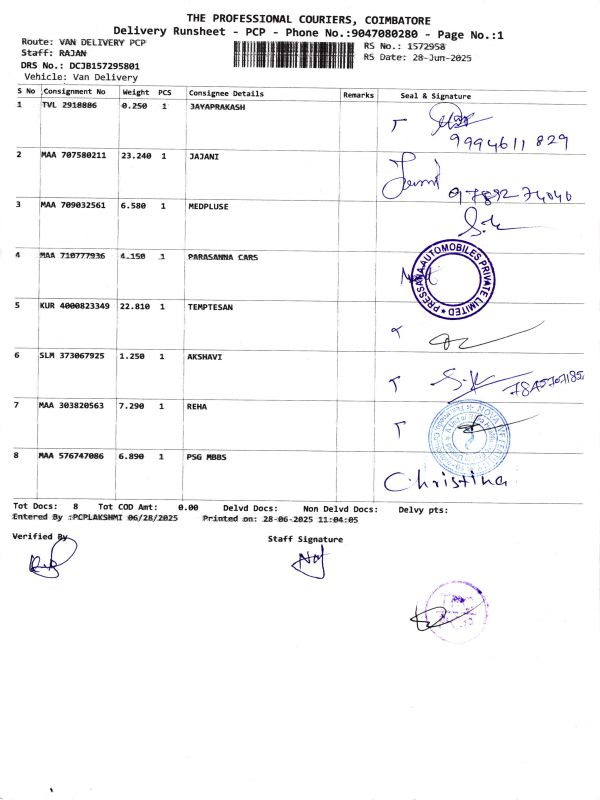 THE PROFESSIONAL COURIERS, COIMBATORE
Delivery Runsheet - PCP - Phone No.:9047080280 - Page No.:1
Route: VAN DELIVERY PCP
RS No.: 1572958
Staff: RAJAN
RS Date: 28-Jun-2025
DRS No.: DCJB157295801
Vehicle: Van Delivery
S No Consignment No Weight PCS Consignee Details Remarks Seal & Signature
1 TVL 2918886 0.250 1 JAYAPRAKASH
9994611829
2 MAA 707580211 23.240 1 JAJANI
3 MAA 709032561 6.580 1 MEDPLUSE
4 MAA 710777936 4.150 1 PARASANNA CARS
PRESSANA AUTOMOBILES PRIVATE LIMITED
5 KUR 4000823349 22.810 1 TEMPTESAN
6 SLM 373067925 1.250 1 AKSHAVI
S.K
7 MAA 303820563 7.290 1 REHA
8 MAA 576747086 6.890 1 PSG MBBS
Christina
Tot Docs: 8 Tot COD Amt: 0.00 Delvd Docs: Non Delvd Docs: Delvy pts:
Entered By :PCPLAKSHMI 06/28/2025 Printed on: 28-06-2025 11:04:05
Verified By
Staff Signature